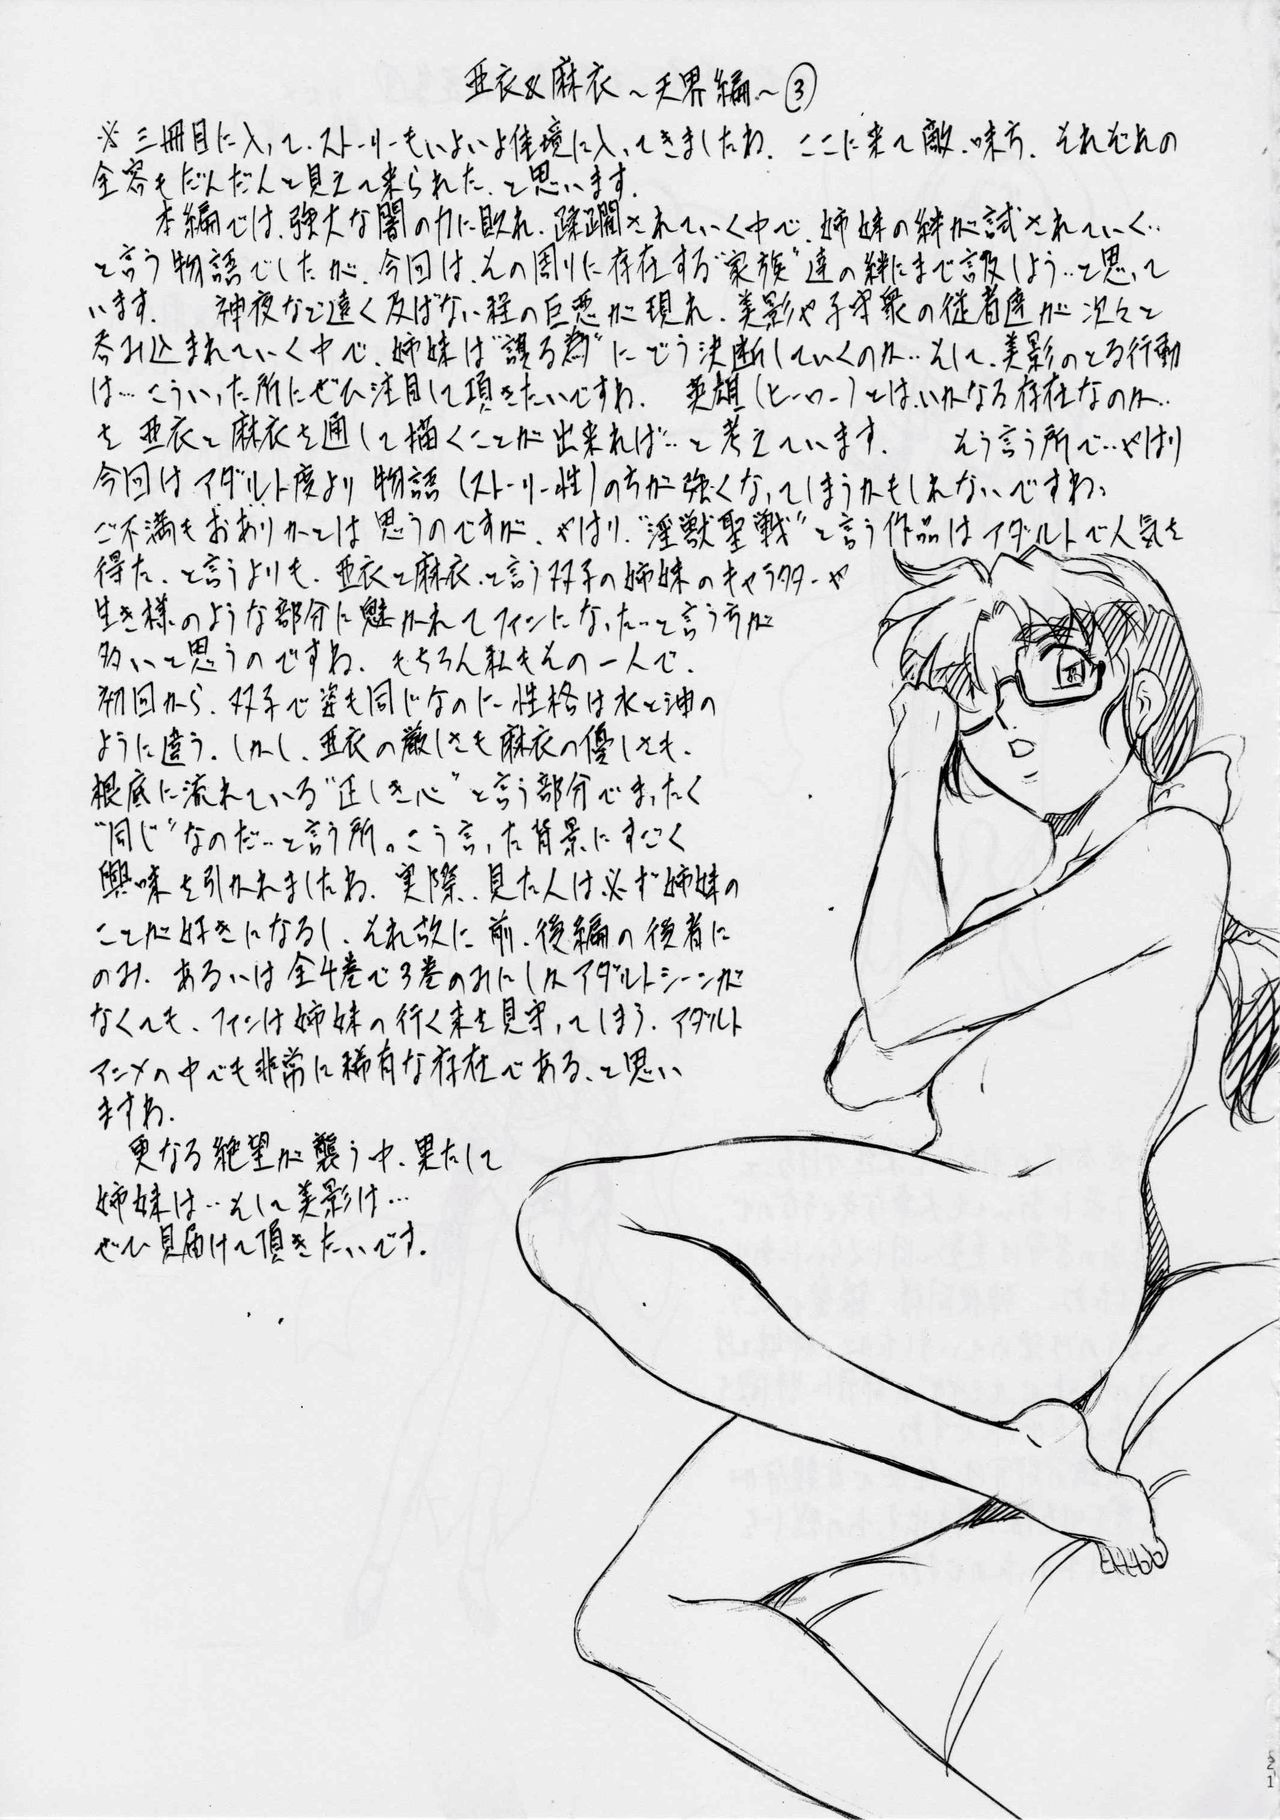 亜衣&麻衣～天界編～③
※三冊目に入って、ストーリーもいよいよ佳境に入ってきましたね。ここに来て敵、味方、それぞれの
全容もだんだんと見えて来られた、と思います。
本編では、強大な闇の力に敗れ、蹂躙されていく中で、姉妹の絆が試されていく…
と言う物語でしたが、今回は、その周りに存在する"家族"達の絆にまで言及しよう…と思って
います。 神夜など遠く及ばない程の巨悪が現れ、美影や子守衆の従者達が次々と
呑み込まれていく中で、姉妹は"護る為"にどう決断していくのか…そして、美影のとる行動
は…こういった所にぜひ注目して頂きたいですね。 英雄(ヒーロー)とは、いかなる存在なのか…
を 亜衣と麻衣を通して描くことが出来れば…と考えています。 そう言う所で…やはり
今回はアダルト度より物語(ストーリー性)の方が強くなってしまうかもしれないですね。
ご不満もおありかとは思うのですが、やはり、"淫獣聖戦"と言う作品はアダルトで人気を
得た、と言うよりも、亜衣と麻衣、と言う双子の姉妹のキャラクターや
生き様のような部分に魅かれてファンになった…と言う方が
多いと思うのですね。もちろん私もその一人で、
初回から、双子で姿も同じなのに性格は水と油の
ように違う。しかし、亜衣の厳しさも麻衣の優しさも、
根底に流れている"正しき心"と言う部分でまったく
"同じ"なのだ…と言う所。こう言った背景にすごく
興味を引かれましたね。実際、見た人は必ず姉妹の
ことが好きになるし、それ故に前、後編の後者に
のみ、あるいは全4巻で3巻のみにしかアダルトシーンが
なくても、ファンは姉妹の行く末を見守ってしまう、アダルト
アニメの中でも非常に稀有な存在である、と思い
ますね。
更なる絶望が襲う中、果たして
姉妹は…そして美影は…
ぜひ見届けて頂きたいです。
21